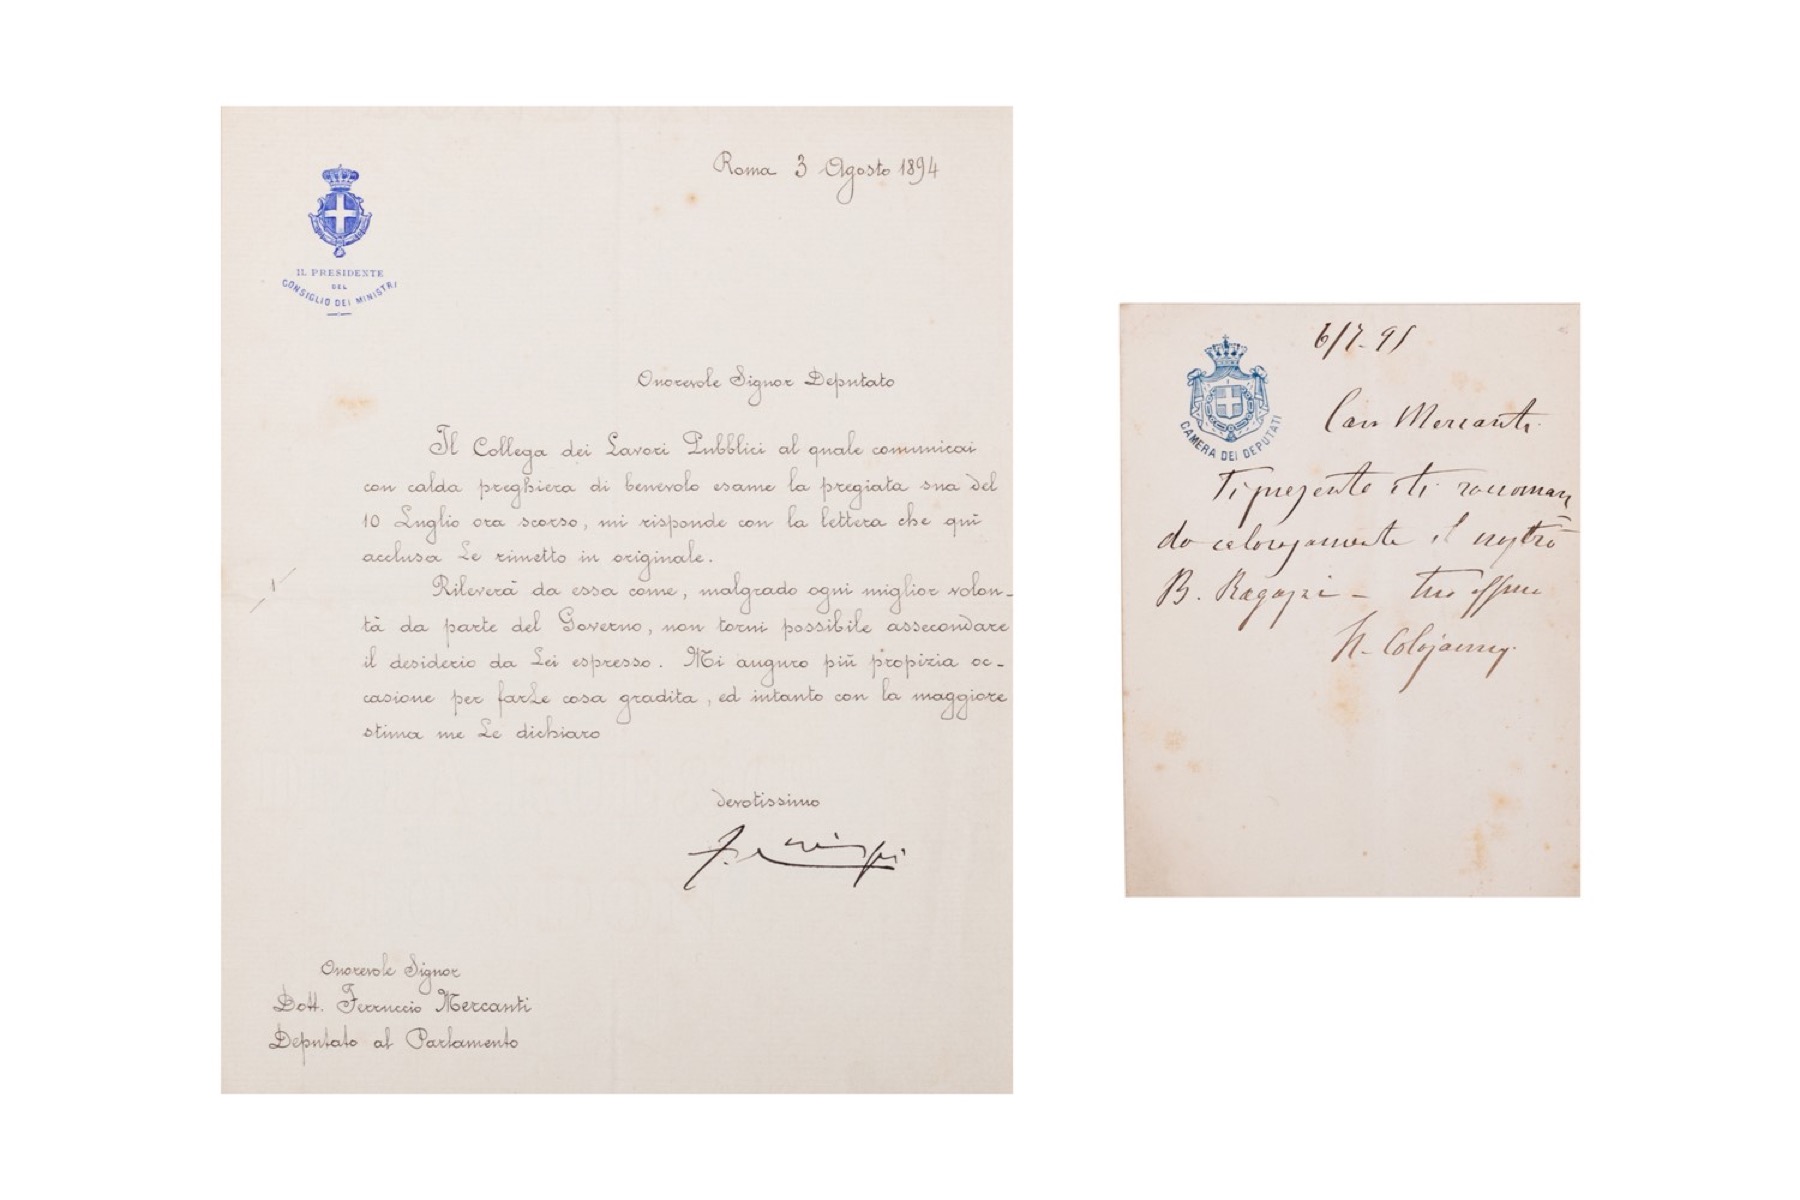 Roma 3 Agosto 1894
IL PRESIDENTE
DEL
CONSIGLIO DEI MINISTRI
Onorevole Signor Deputato
Il Collega dei Lavori Pubblici al quale comunicai
con calda preghiera di benevolo esame la pregiata sua del
10 Luglio ora scorso, mi risponde con la lettera che quì
acclusa Le rimetto in originale.
Rileverà da essa come, malgrado ogni miglior volon-
tà da parte del Governo, non torni possibile assecondare
il desiderio da Lei espresso. Mi auguro più propizia oc-
casione per farLe cosa gradita, ed intanto con la maggiore
stima me Le dichiaro
devotissimo
F. Crispi
Onorevole Signor
Dott. Ferruccio Mercanti
Deputato al Parlamento
6/7-95
CAMERA DEI DEPUTATI
Caro Mercanti
Ti presento e ti raccoman
do calorosamente il nostro
B. Ragazzi -
N. Colajanni